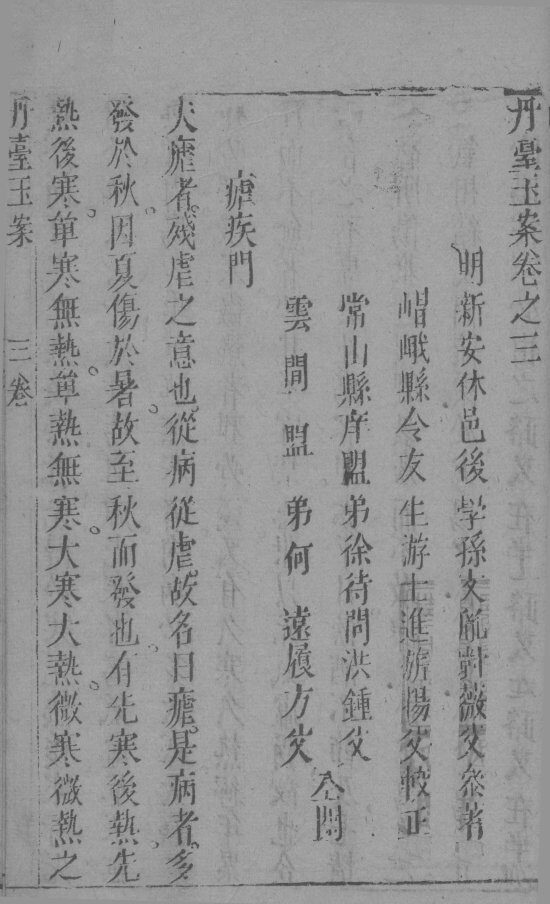 丹臺玉案卷之三
明新安休邑後學孫文胤對薇父叅著
嵋峨縣令友生游士進旂揚父較正
常山縣庠盟弟徐待問洪鍾父
雲間盟弟何遠履方父仝閱
瘧疾門
夫瘧者殘虐之意也從病從虐故名曰瘧是病者多
發於秋因夏傷於暑故至秋而發也有先寒後熱先
熱後寒單寒無熱單熱無寒大寒大熱微寒微熱之
丹臺玉案 三卷